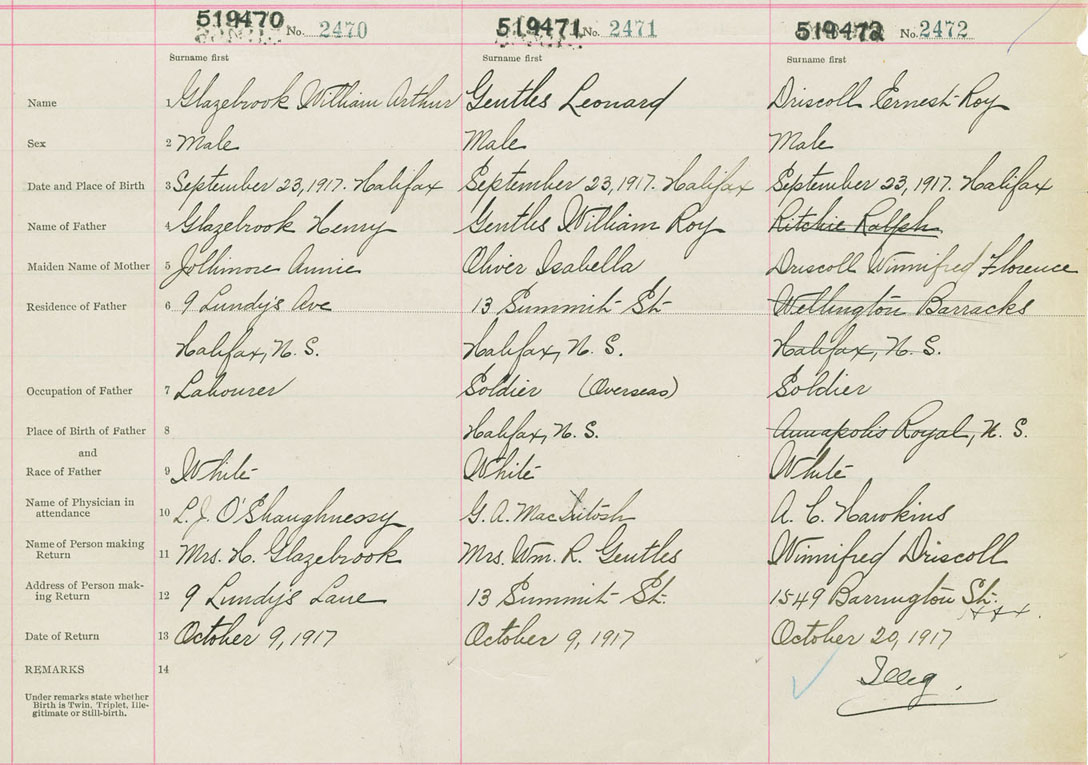 519470 No. 2470 519471 No. 2471 519472 No. 2472
Surname first Surname first Surname first
Name 1 Glazebrook William Arthur Gentles Leonard Driscoll Ernest Roy
Sex 2 Male Male Male
Date and Place of Birth 3 September 23, 1917. Halifax September 23, 1917. Halifax September 23, 1917. Halifax
Name of Father 4 Glazebrook Henry Gentles William Roy Ritchie Ralph
Maiden Name of Mother 5 Jollimore Annie Oliver Isabella Driscoll Winnifred Florence
Residence of Father 6 9 Lundy's Ave 13 Summit St. Wellington Barracks
Halifax, N. S. Halifax, N. S. Halifax, N. S.
Occupation of Father 7 Labourer Soldier (Overseas) Soldier
Place of Birth of Father 8 Halifax, N. S. Annapolis Royal, N. S.
and
Race of Father 9 White White White
Name of Physician in
attendance 10 L. J. O'Shaughnessy G. A. MacIntosh A. C. Hawkins
Name of Person making
Return 11 Mrs. H. Glazebrook Mrs. Wm. R. Gentles Winnifred Driscoll
Address of Person mak-
ing Return 12 9 Lundy's Lane 13 Summit St. 1549 Barrington St.
Date of Return 13 October 9, 1917 October 9, 1917 October 20, 1917
REMARKS 14 Illeg.
Under remarks state whether
Birth is Twin, Triplet, Ille-
gitimate or Still-birth.